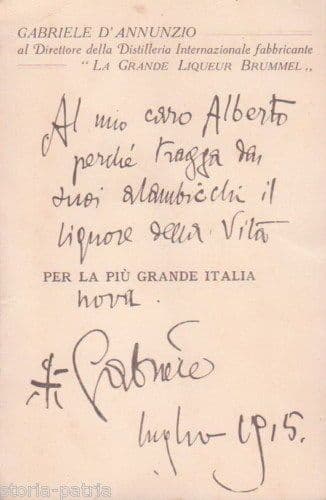 GABRIELE D'ANNUNZIO
al Direttore della Distilleria Internazionale fabbricante
" LA GRANDE LIQUEUR BRUMMEL „
Al mio caro Alberto
perché tragga dai
suoi alambicchi il
liquore della Vita
PER LA PIÙ GRANDE ITALIA
nova.
Gabriele
luglio 1915.
storia-patria